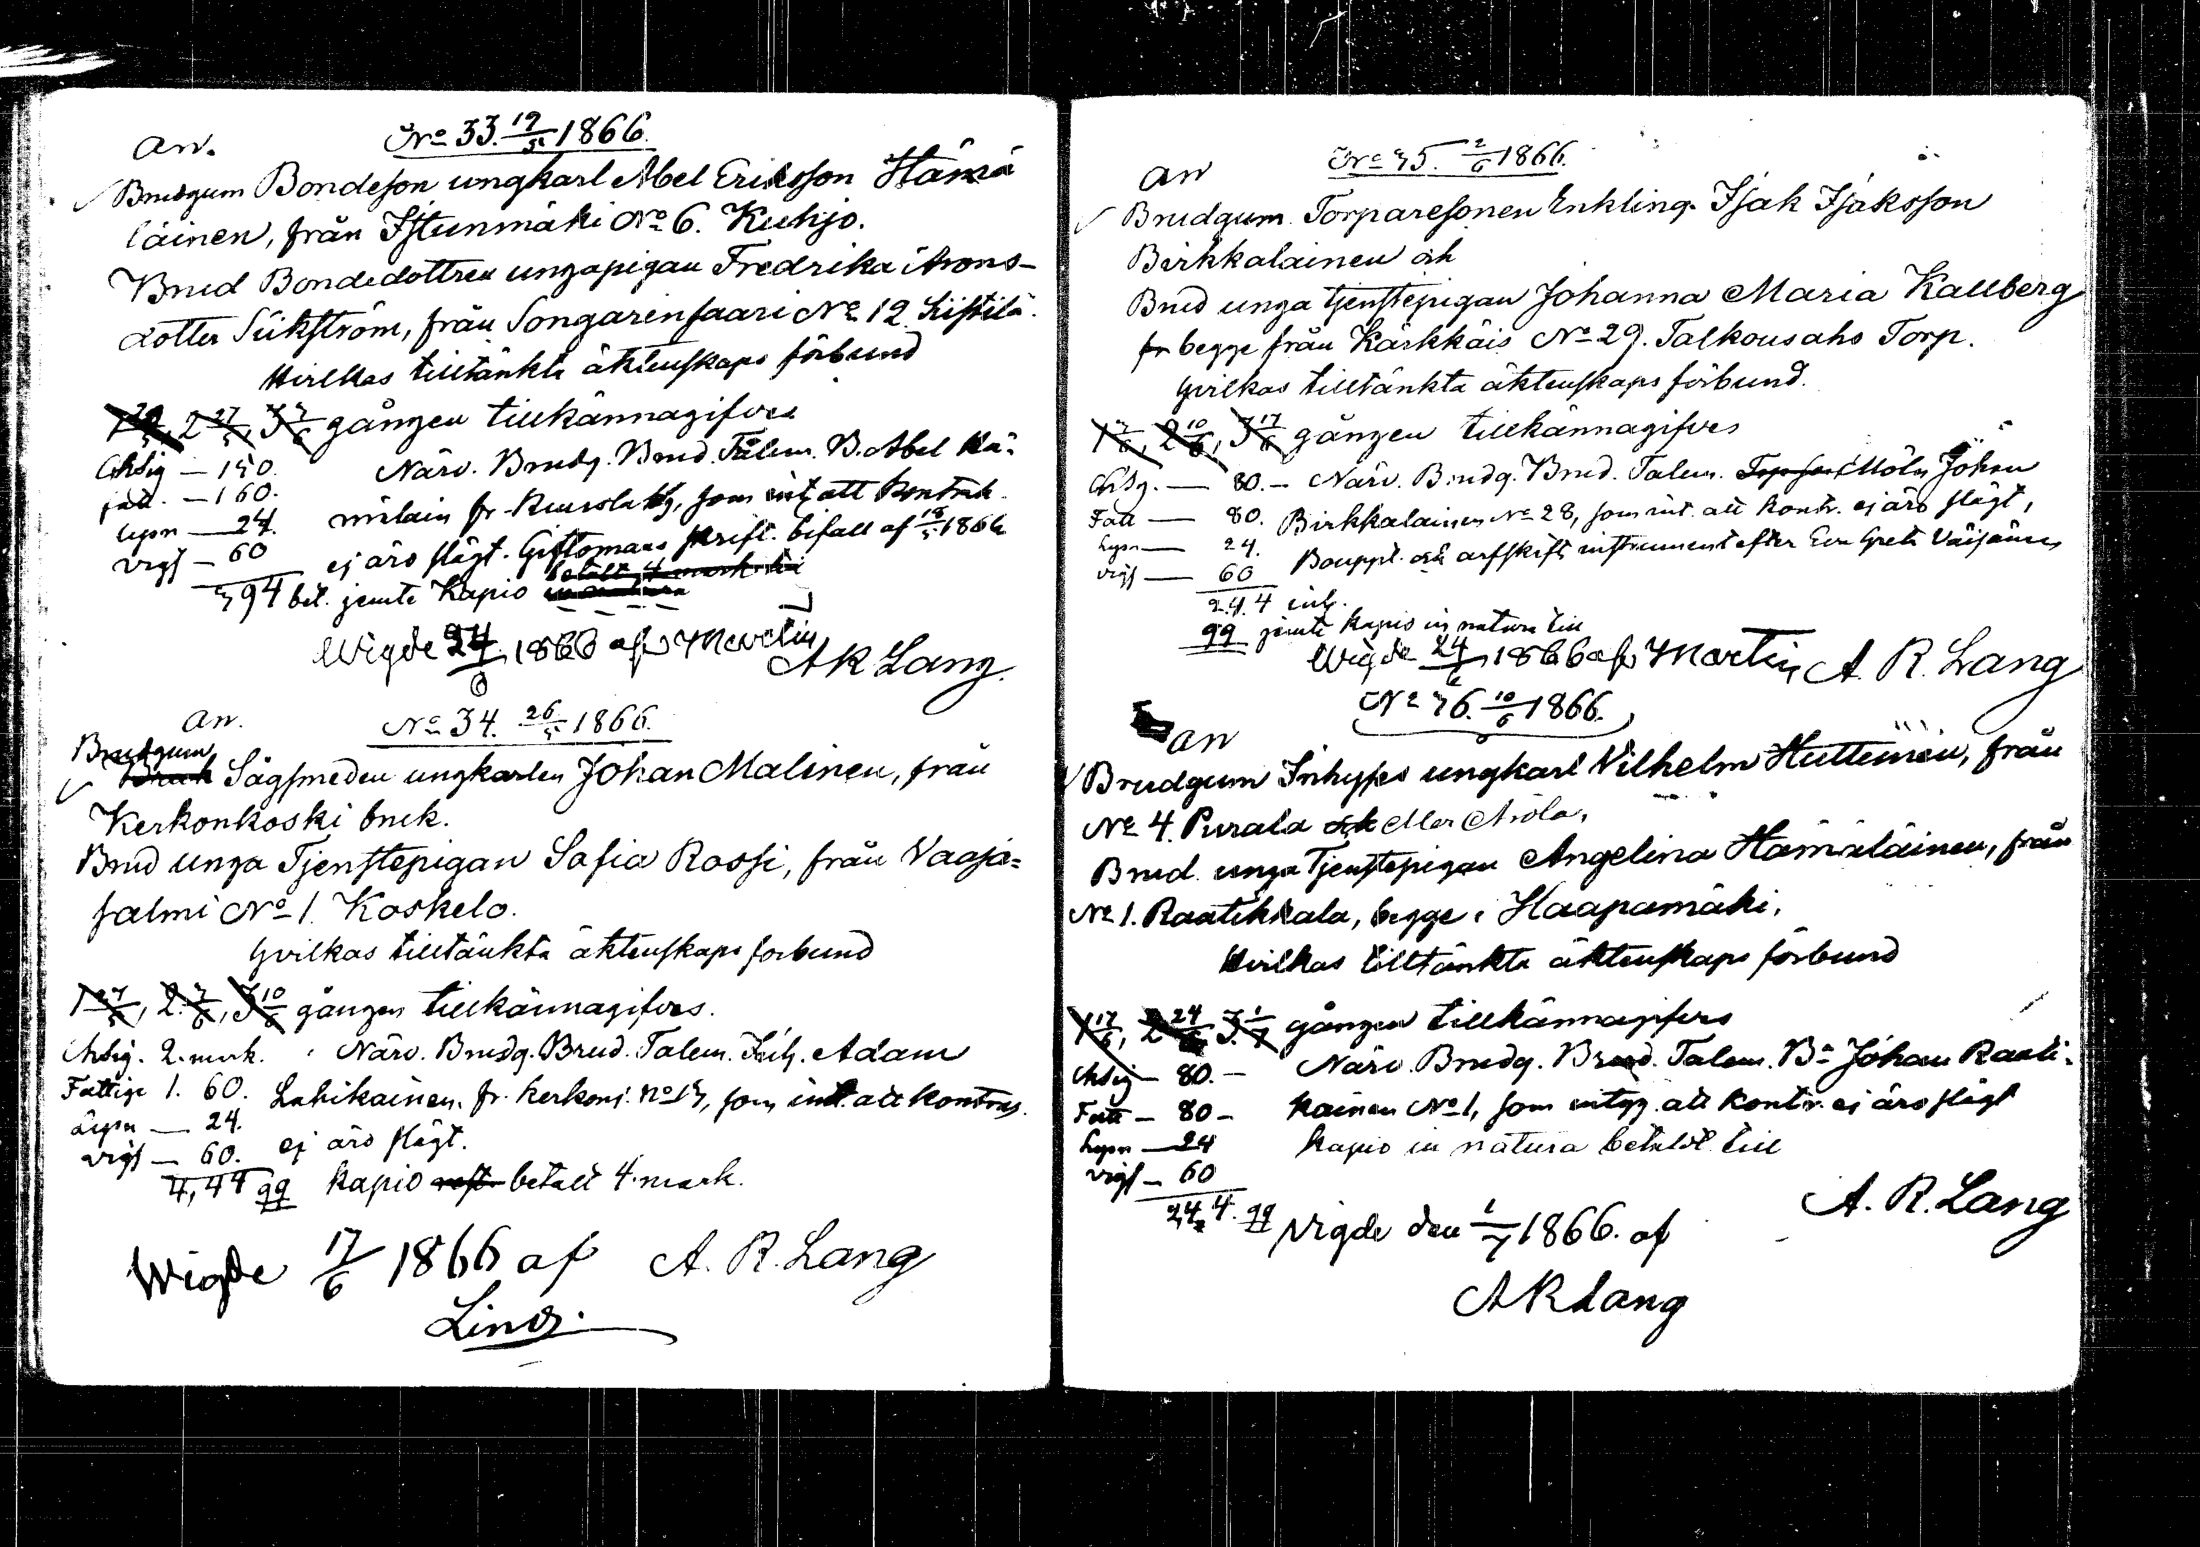 an.
No 33. 19/5 1866.
Brudgum Bondeson ungkarl Abel Eriksson Hämä
läinen, från Istunmäki No 6. Kuhjo.
Brud Bondedottren ungapigan Fredrika Arons-
dotter Siikström, från Songarinsaari No 12
Hvilkas tilltänkta äktenskaps förbund
2 27/5, 3 3/6 gången tillkännagifves
150. Närv. Brudg. Brud. Talem. B. Abel Hä-
160. mälain fr. som att kontrah.
Lysn — 24. ej äro slägt. Giftomans skrift. bifall af 18/5 1866
Vigs — 60
394 bet. jemte Kapio
Wigde 24/6 1866 af Martin
A R Lang.
an.
No 34. 26/5 1866.
Brudgum
Sågsmeden ungkarlen Johan Malinen, från
Kerkonkoski bruk.
Brud unga Tjenstepigan Sofia Rossi, från Vaaja-
salmi No 1. Koskelo.
Hvilkas tilltänkta äktenskaps forbund
1 27/5, 2 3/6, 3 10/6 gången tillkännagifves.
2. mark. Närv. Brudg. Brud. Talem. Inh. Adam
Fattige 1. 60. Lahikainen. fr. Kerkonj. som att kontrah.
Lysn — 24. ej äro slägt.
Vigs — 60.
4,44 Kapio betalt 4 mark.
Wigde 17/6 1866 af A. R. Lang
Lind.
an
No 35. 2/6 1866.
Brudgum. Torparesonen Enkling. Isak Isaksson
Birkkalainen och
Brud unga tjenstepigan Johanna Maria Kallberg
fr begge från Kärkkäis No 29. Talkousaho Torp.
Hvilkas tilltänkta äktenskaps förbund.
1 3/6, 2 10/6, 3 17/6 gången tillkännagifves
80. — Närv. Brudg. Brud. Talem. Johan
Fatt — 80. Birkkalainen No 28, som int. att kontr. ej äro slägt,
Lysn — 24. Bouppt. och arfskifts instrument efter Eva Greta Väisänen
Vigs — 60
2.4.4
jemte kapio in natura till
Wigde 24/6 1866 af Martin A. R. Lang
No 36. 10/6 1866.
an
Brudgum Inhyses ungkarl Vilhelm Huttunen, från
No 4. Purala
Brud. unga Tjenstepigan Angelina Hämäläinen, från
No 1. Raatikkala, begge i Haapamäki.
Hvilkas tilltänkta äktenskaps förbund
1 17/6, 2 24/6 3 1/7 gången tillkännagifves
80. — Närv. Brudg. Brud. Talem. Bn Johan Raati-
Fatt — 80 — kainen No 1, som intyg. att kontr. ej äro slägt
Lysn — 24 Kapio in natura betaldt till
Vigs — 60
24 4. A. R. Lang
Vigde den 1/7 1866. af
A R Lang